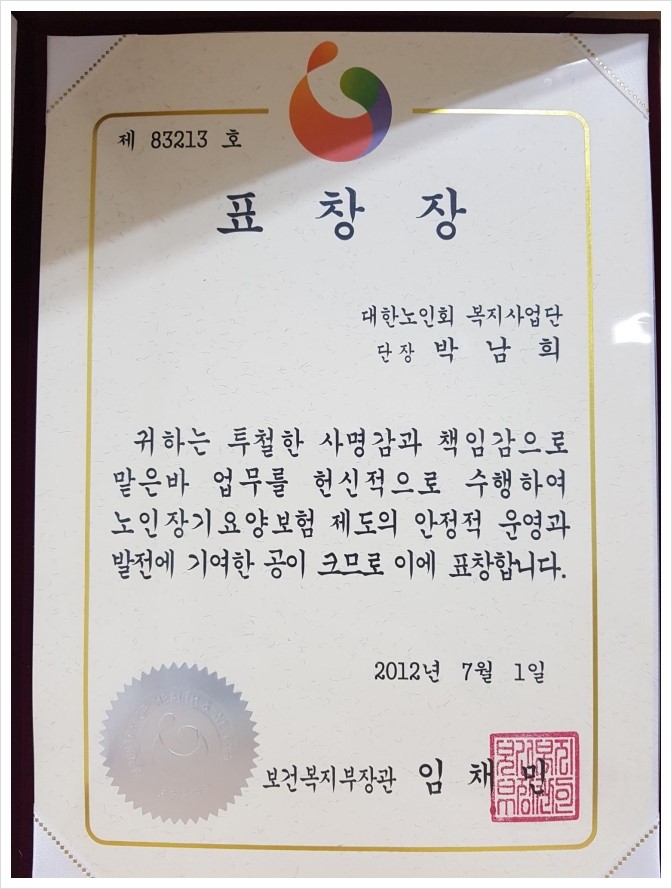 제 83213 호
표 창 장
대한노인회 복지사업단
단장 박 남 희
귀하는 투철한 사명감과 책임감으로
맡은바 업무를 헌신적으로 수행하여
노인장기요양보험 제도의 안정적 운영과
발전에 기여한 공이 크므로 이에 표창합니다.
2012년 7월 1일
보건복지부장관 임 채 민